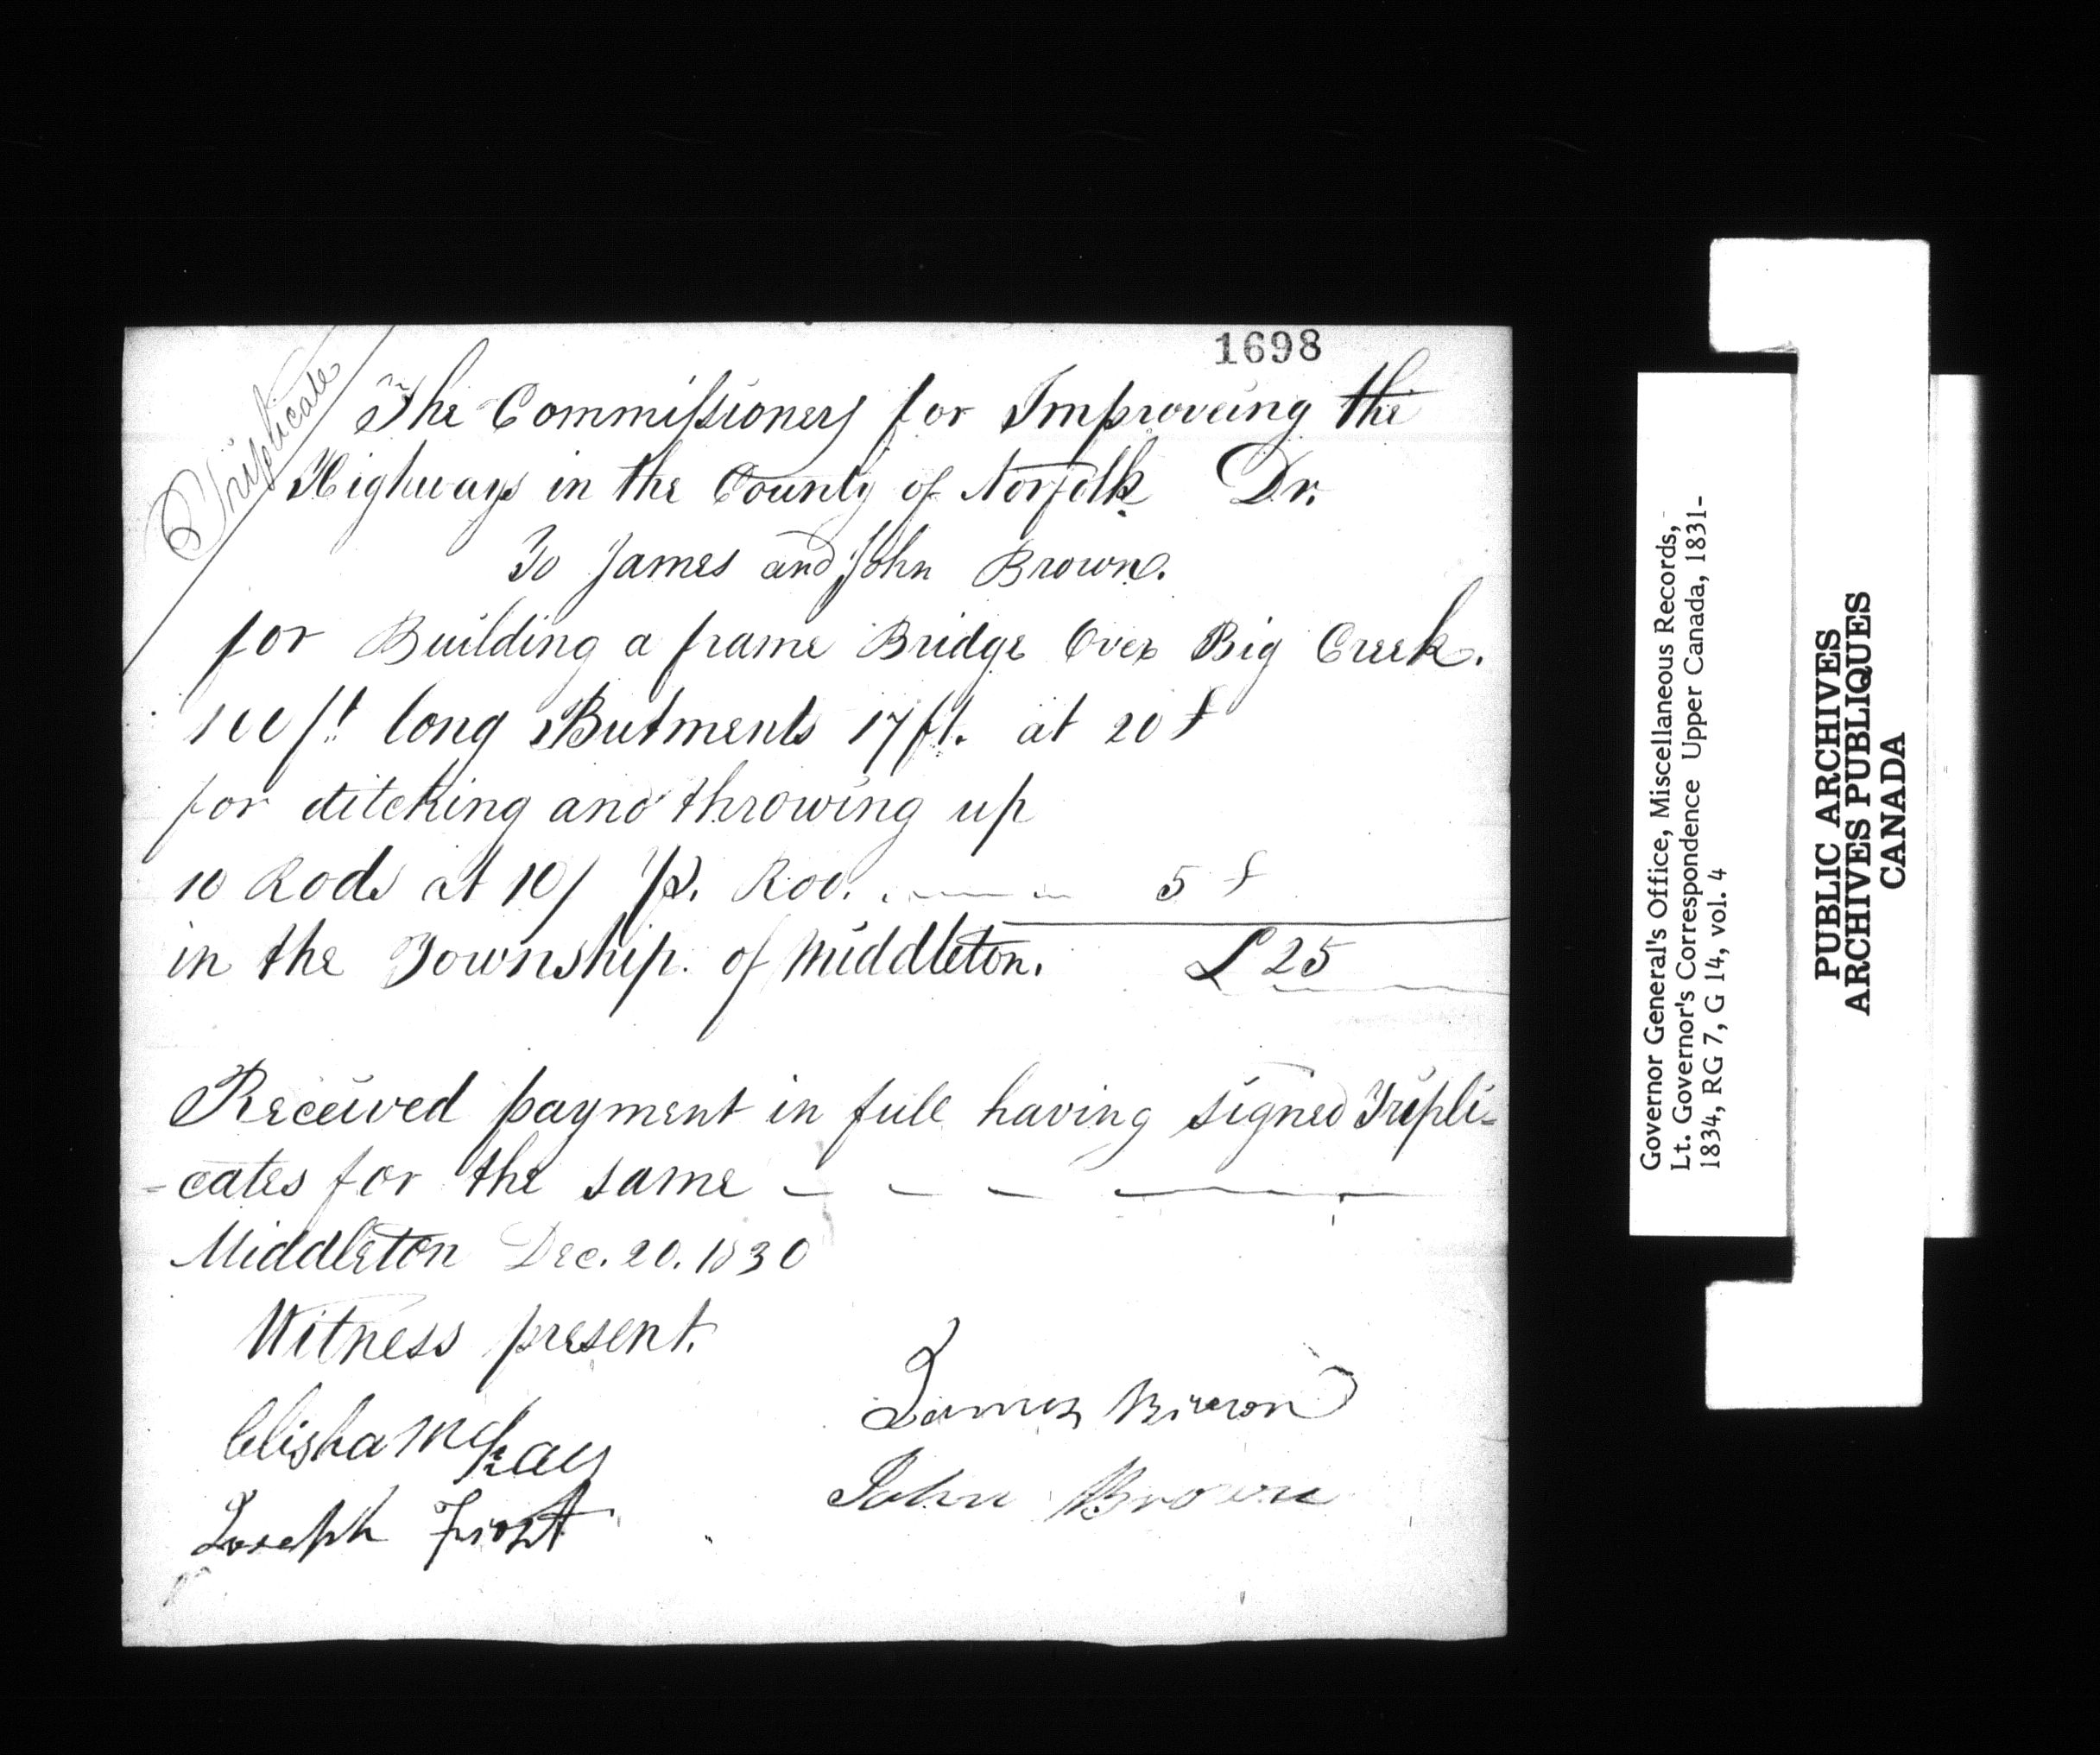 1698
Triplicate
The Commissioners for Improveing the
Highways in the County of Norfolk Dr.
To James and John Brown.
for Building a frame Bridge Over Big Creek.
100 ft long Butments 17 ft. at 20 £
for ditching and throwing up
10 Rods at 10/ pr. Rod. 5 £
in the Township of Middleton. £ 25
Received payment in full having signed Tripli-
-cates for the same
Middleton Dec. 20. 1830
Witness present.
Elisha McKay
Joseph Frost
James Brown
John Brown
Governor General's Office, Miscellaneous Records,
Lt. Governor's Correspondence Upper Canada, 1831-
1834, RG 7, G 14, vol. 4
PUBLIC ARCHIVES
ARCHIVES PUBLIQUES
CANADA